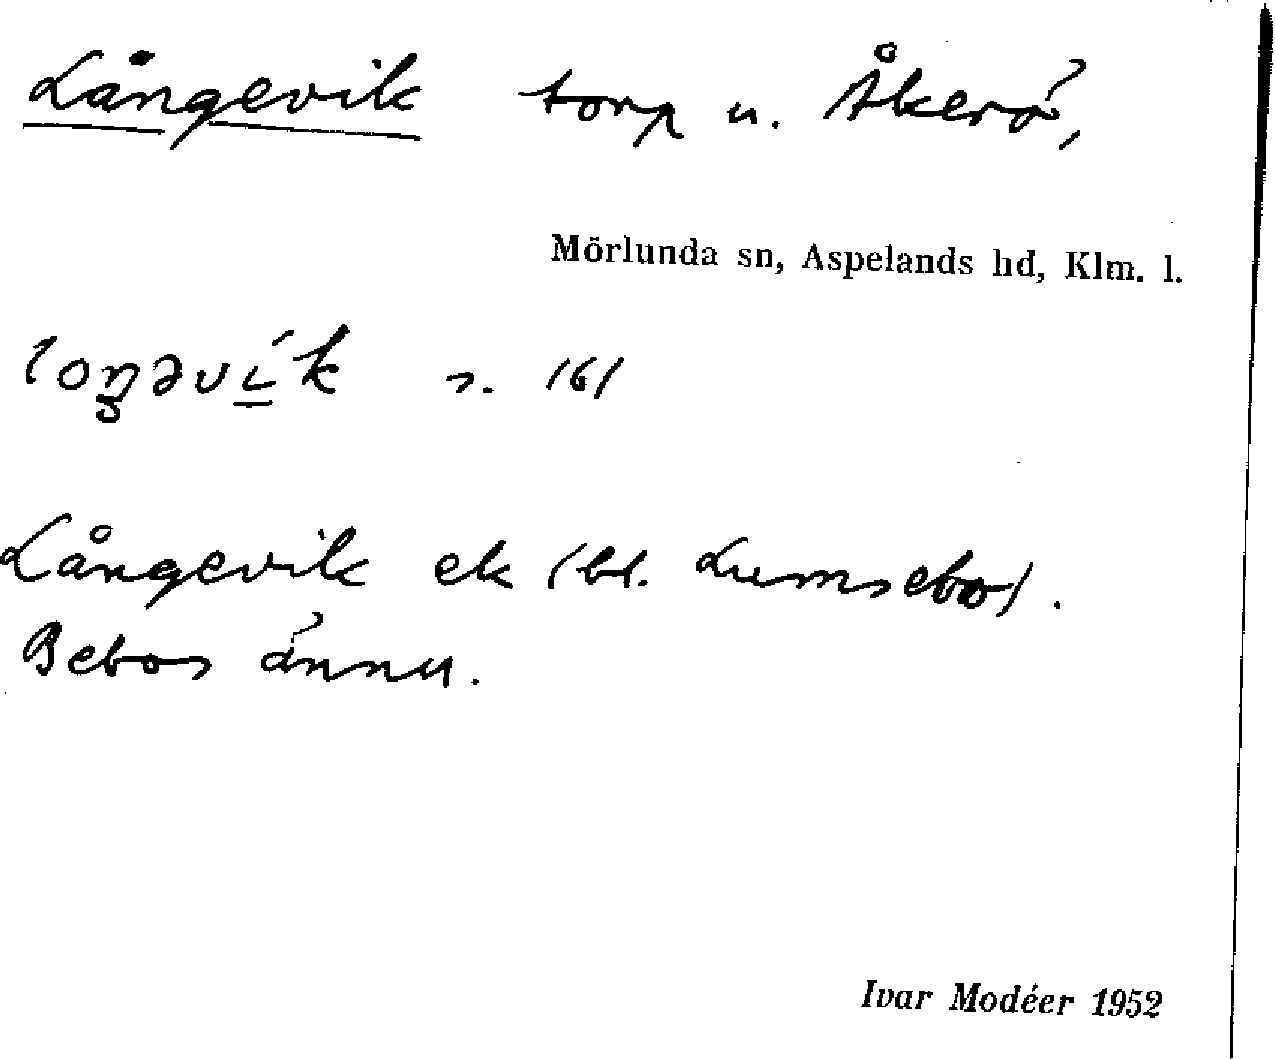 Långevik torp u. Åkerö,
Mörlunda sn, Aspelands hd, Klm. l.
loŋəví̲k s. (6)
Långevik ek (bl. Lumsebo).
Bebos ännu.
Ivar Modéer 1952